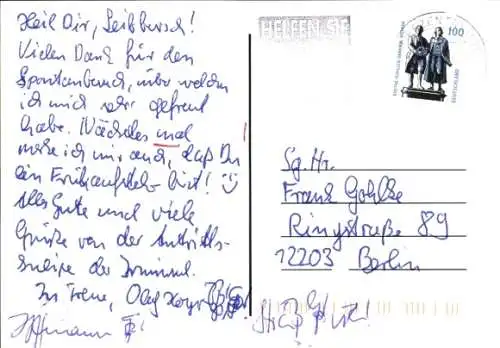 Heil Dir, Leibbursch!
Vielen Dank für den
Spontanbesuch, über welchen
ich mich sehr gefreut
habe. Nächstes mal
merke ich mir auch, daß Du
ein Frühaufsteher bist!
Alles Gute und viele
Grüße von der Antritts-
kneipe der
In Treue, Olaf
HELFEN SIE
100
DEUTSCHLAND
Sg. Hr.
Frank Gohlke
Ringstraße 89
12203 Berlin